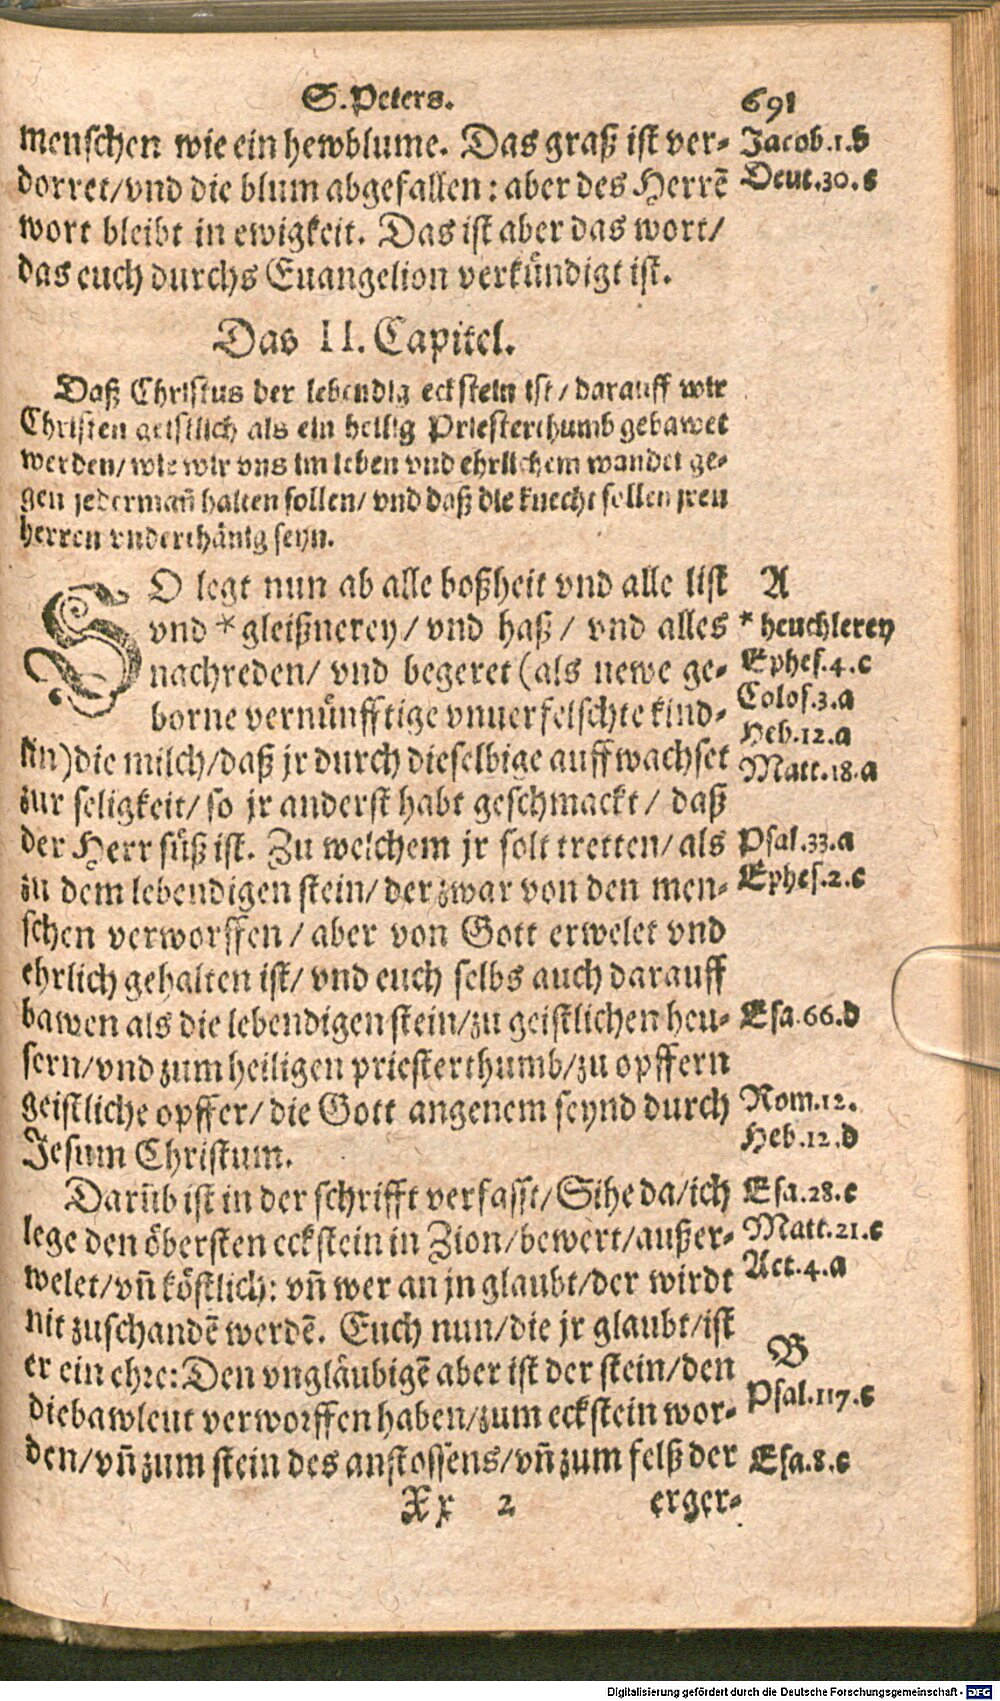 S. Peters. 691
menschen wie ein hewblume. Das graß ist ver-
dorret/vnd die blum abgefallen: aber des Herrẽ
wort bleibt in ewigkeit. Das ist aber das wort/
das euch durchs Euangelion verkündigt ist.
Jacob.1.b
Deut.30.c
Das II. Capitel.
Daß Christus der lebendig eckstein ist/ darauff wir
Christen geistlich als ein heilig Priesterthumb gebawet
werden/ wie wir vns im leben vnd ehrlichem wandel ge-
gen jederman̄ halten sollen/ vnd daß die knecht sollen jren
herren vnderthänig seyn.
SO legt nun ab alle boßheit vnd alle list
vnd * gleißnerey/ vnd haß/ vnd alles
nachreden/ vnd begeret (als newe ge-
borne vernünfftige vnuerfelschte kind-
lin) die milch/daß jr durch dieselbige auffwachset
zur seligkeit/ so jr anderst habt geschmackt/ daß
der Herr süß ist. Zu welchem jr solt tretten/ als
zu dem lebendigen stein/ der zwar von den men-
schen verworffen/ aber von Gott erwelet vnd
ehrlich gehalten ist/ vnd euch selbs auch darauff
bawen als die lebendigen stein/zu geistlichen heu-
sern/vnd zum heiligen priesterthumb/zu opffern
geistliche opffer/ die Gott angenem seynd durch
Jesum Christum.
A
* heuchlerey
Ephes.4.c
Colos.3.a
Heb.12.a
Matt.18.a
Psal.33.a
Ephes.2.c
Esa.66.d
Rom.12.
Heb.12.d
Darũb ist in der schrifft verfasst/ Sihe da/ich
lege den öbersten eckstein in Zion/bewert/außer-
welet/vñ köstlich: vñ wer an jn glaubt/der wirdt
nit zuschandẽ werdẽ. Euch nun/die jr glaubt/ist
er ein ehre: Den vngläubigẽ aber ist der stein/den
die bawleut verworffen haben/zum eckstein wor-
den/vñ zum stein des anstossens/vñ zum felß der
Esa.28.c
Matt.21.c
Act.4.a
B
Psal.117.c
Esa.8.c
Xx 2 erger-
Digitalisierung gefördert durch die Deutsche Forschungsgemeinschaft - DFG